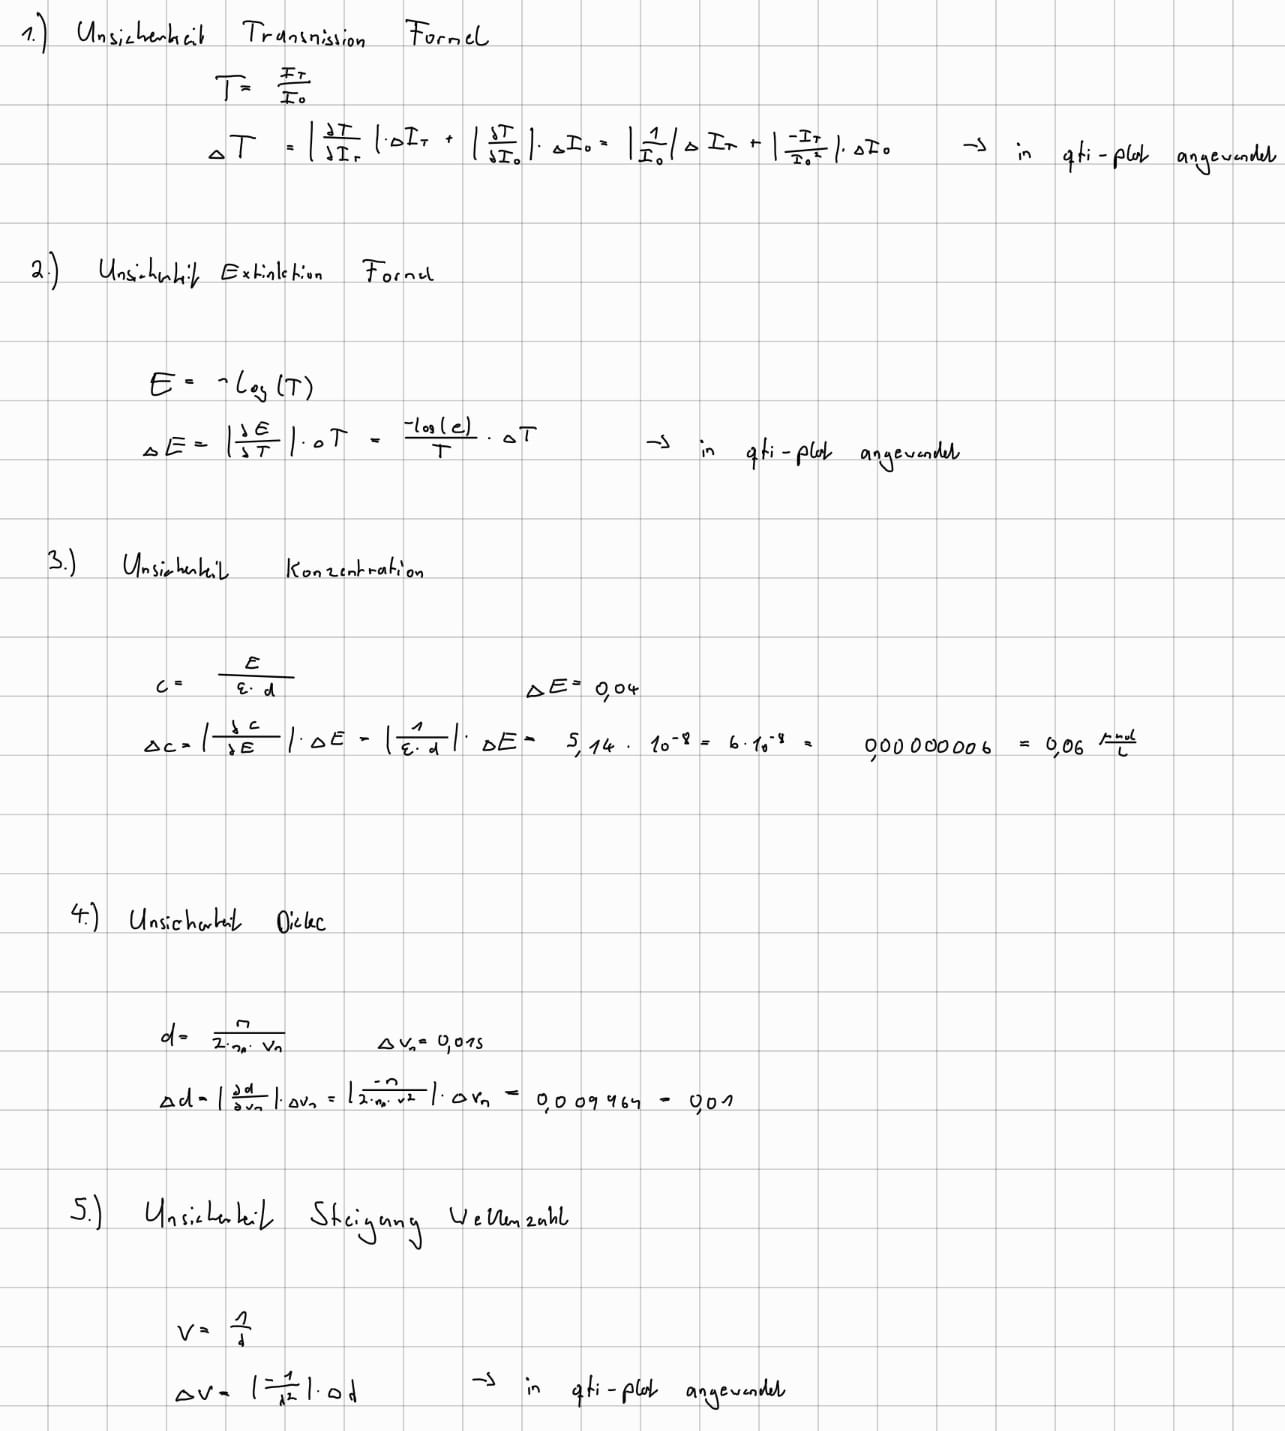 1.) Unsicherheit Transmission Formel
T = I_T / I_0
ΔT = |∂T/∂I_T| · ΔI_T + |∂T/∂I_0| · ΔI_0 = |1/I_0| Δ I_T + |-I_T/I_0²| · ΔI_0 → in qti-plot angewendet
2.) Unsicherheit Extinktion Formel
E = -log(T)
ΔE = |∂E/∂T| · ΔT = -log(e)/T · ΔT → in qti-plot angewendet
3.) Unsicherheit Konzentration
c = E / ε · d ΔE = 0,04
Δc = |∂c/∂E| · ΔE = |1/ε · d| · ΔE = 5,14 · 10⁻⁸ = 6 · 10⁻⁸ = 0,00 000 000 6 = 0,06 μmol/L
4.) Unsicherheit Dicke
d = n / 2 · n · V_n ΔV_n = 0,015
Δd = |∂d/∂v_n| · Δv_n = |-n / 2 · n · v²| · Δv_n = 0,009464 = 0,01
5.) Unsicherheit Steigung Wellenzahl
V = 1/λ
ΔV = |-1/λ²| · Δλ → in qti-plot angewendet